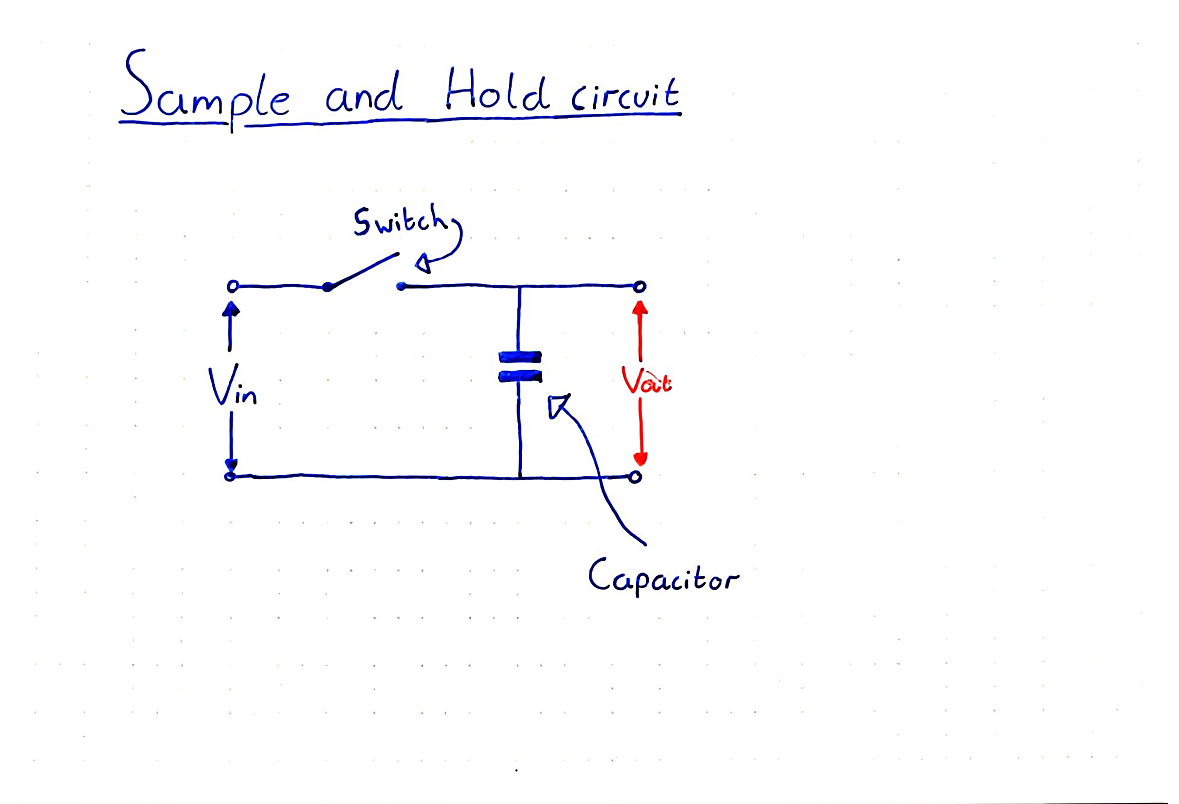 Sample and Hold circuit
Switch
Vin
Vout
Capacitor